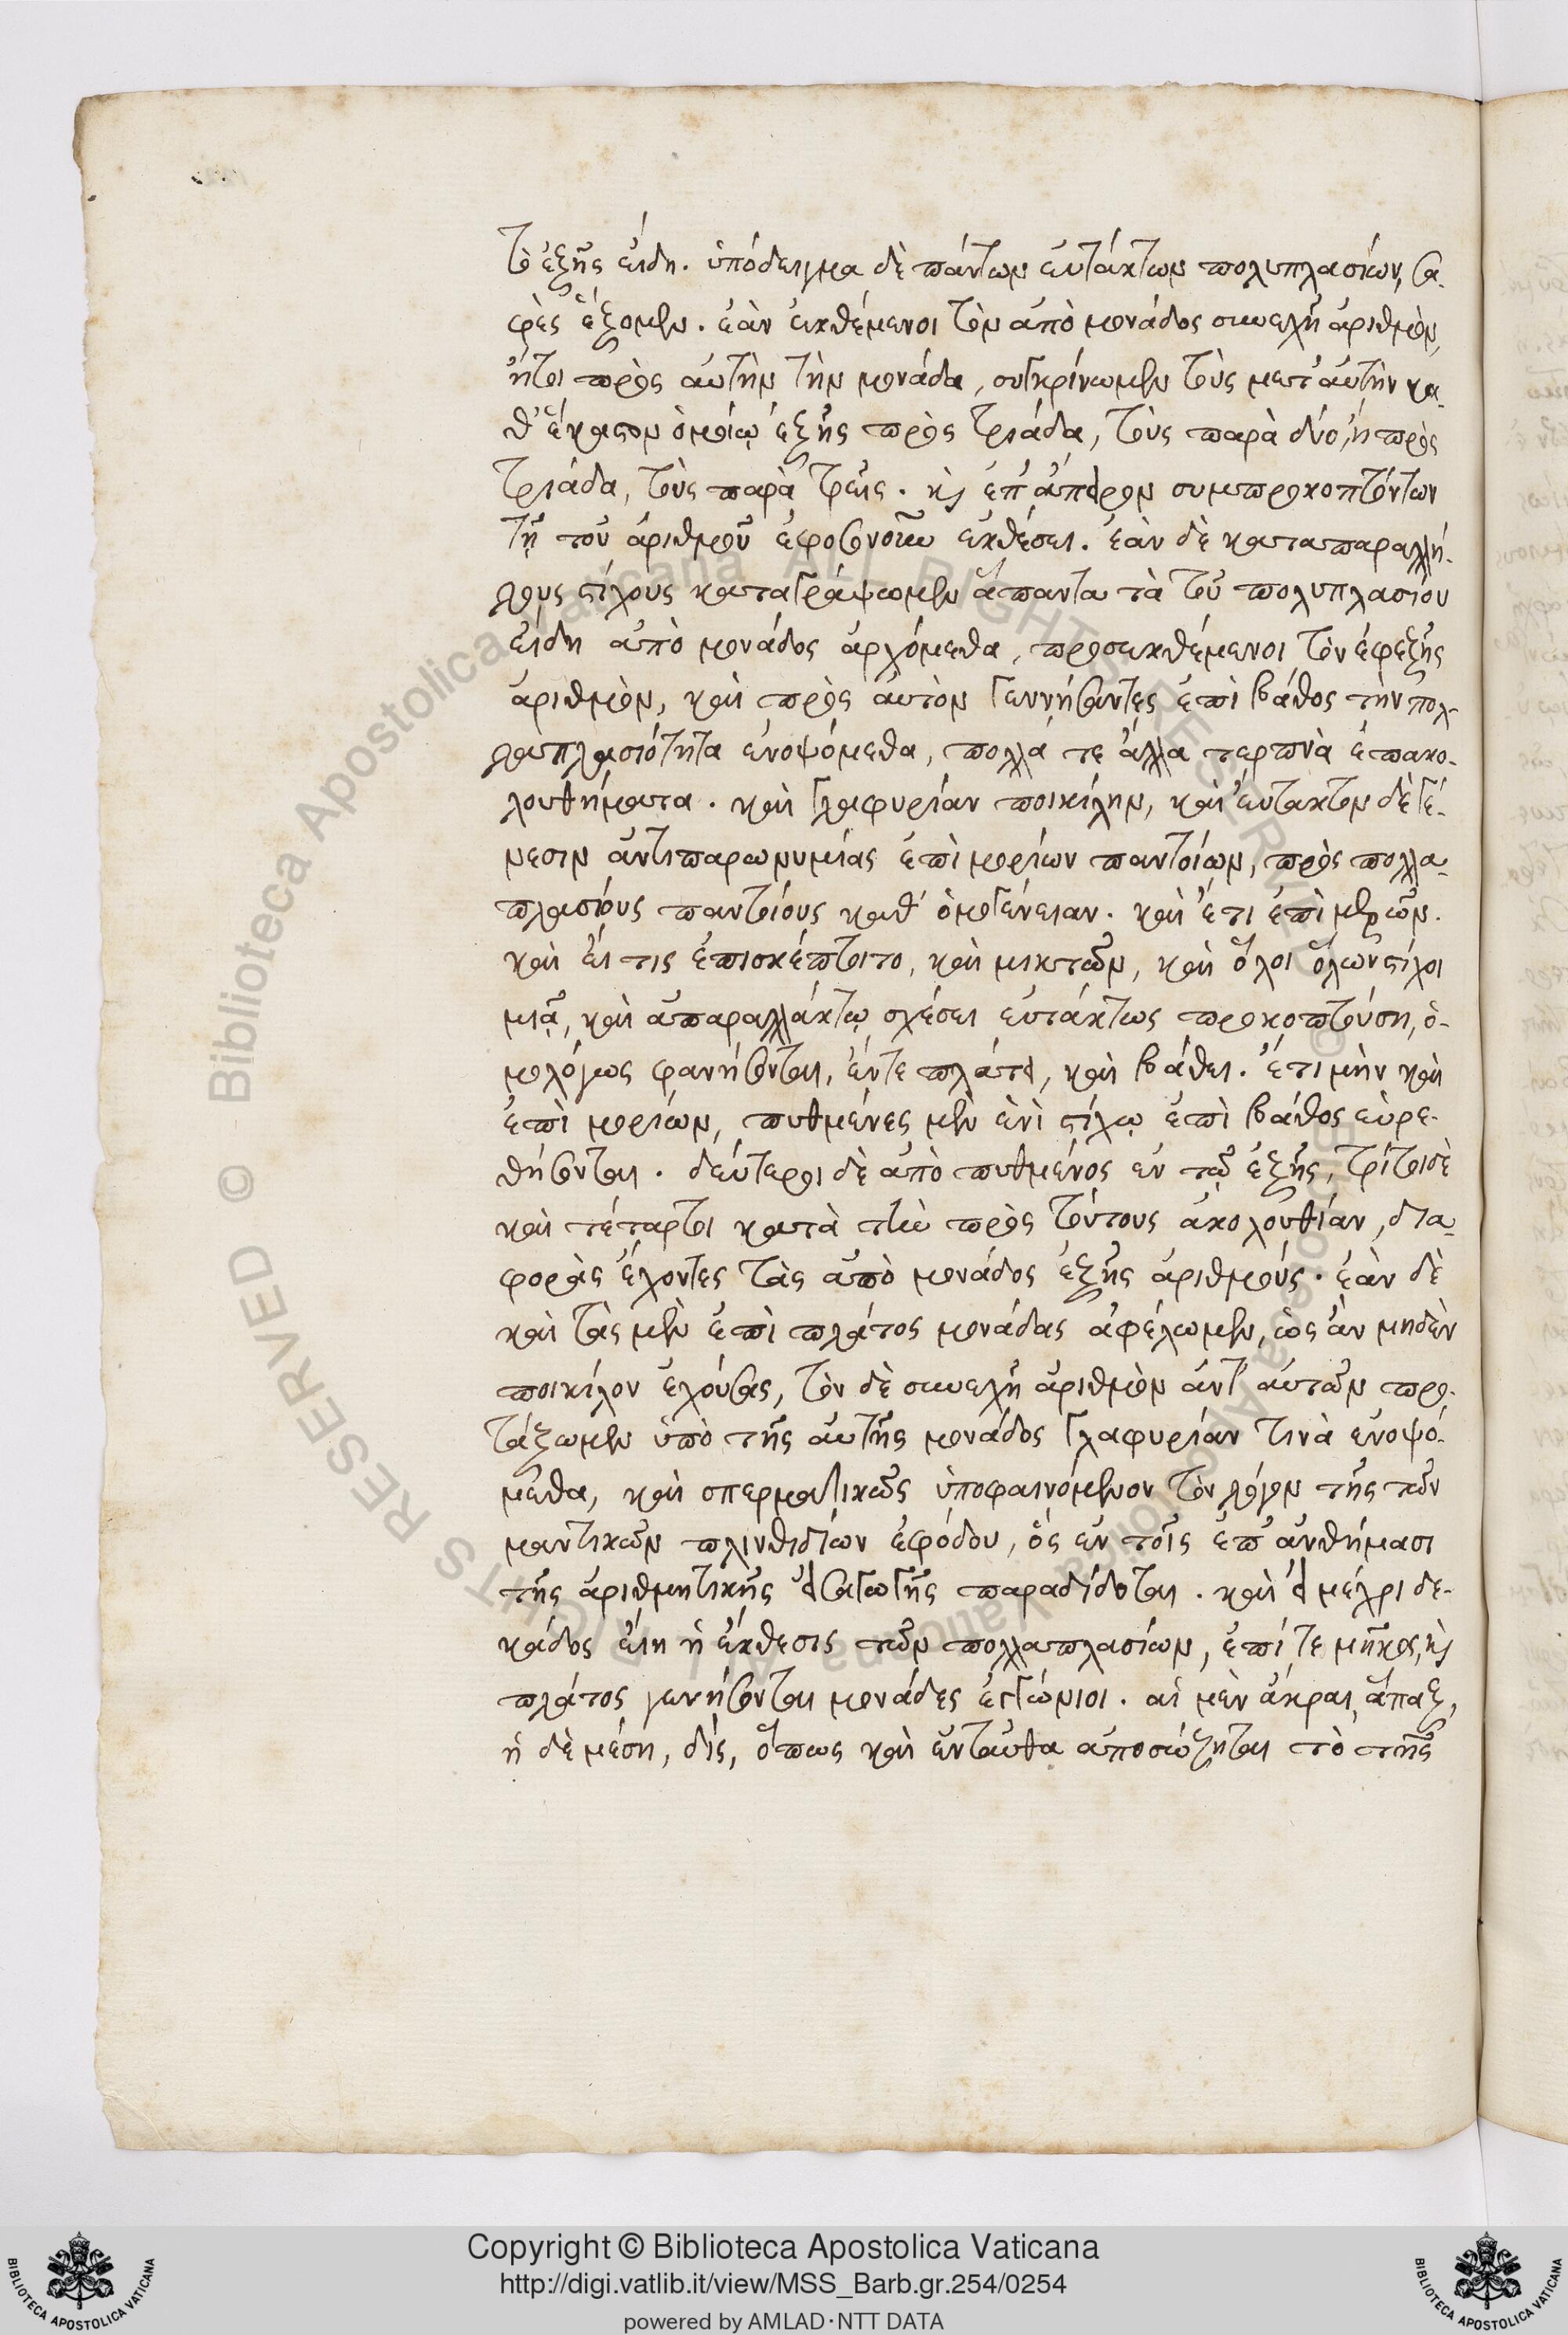 τὸ ἑξῆς εἴδη. ὑπόδειγμα δὲ πάντων εὐτάκτων πολυπλασίων, σα-
φὲς ἕξομεν. ἐὰν ἐκθέμενοι τὸν ἀπὸ μονάδος συνεχῆ ἀριθμὸν,
ἤτοι πρὸς αὐτὴν τὴν μονάδα, συγκρίνωμεν τοὺς μετ' αὐτὴν κα-
θ' ἕκαστον ὁμοίῳ ἑξῆς πρὸς τριάδα, τοὺς παρὰ δύο, ἢ πρὸς
τριάδα, τοὺς παρὰ τρεῖς. κὶ ἐπ' ἄπειρον συμπροκοπτόντων
τῇ τοῦ ἀριθμοῦ ἐκθέσει. ἐὰν δὲ καταπαραλλή-
λους στίχους καταγράψωμεν ἅπαντα τὰ τοῦ πολυπλασίου
εἴδη ἀπὸ μονάδος ἀρχόμεθα, προσεκθέμενοι τὸν ἐφεξῆς
ἀριθμὸν, καὶ πρὸς αὐτὸν γεννήσαντες ἐπὶ βάθος τὴν πολ-
λαπλασιότητα ἐνοψόμεθα, πολλά τε ἄλλα τερπνὰ ἐπακο-
λουθήματα. καὶ γλαφυρίαν ποικίλην, καὶ εὔτακτον δὲ γέ-
νεσιν ἀντιπαρωνυμίας ἐπὶ μορίων παντοίων, πρὸς πολλα-
πλασίους παντοίους καθ' ὁμογένειαν. καὶ ἔτι ἐπὶ μερῶν.
καὶ εἴ τις ἐπισκέπτοιτο, καὶ μικτῶν, καὶ ὅλοι ὅλων στίχοι
μιᾷ, καὶ ἀπαραλλάκτῳ σχέσει εὐτάκτως προκοπτούση, ὁ-
μολόγως φανήσονται, ἔντε πλάτει, καὶ βάθει. ἔτι μὴν καὶ
ἐπὶ μορίων, πυθμένες μὲν ἑνὶ στίχῳ ἐπὶ βάθος εὑρε-
θήσονται. δεύτεροι δὲ ἀπὸ πυθμένος ἐν τῷ ἑξῆς, τρίτοι δὲ
καὶ τέταρτοι κατὰ τὴν πρὸς τούτους ἀκολουθίαν, δια-
φορὰς ἔχοντες τὰς ἀπὸ μονάδος ἑξῆς ἀριθμούς. ἐὰν δὲ
καὶ τὰς μὲν ἐπὶ πλάτος μονάδας ἀφέλωμεν, ὡς ἂν μηδὲν
ποικίλον ἐχούσας, τὸν δὲ συνεχῆ ἀριθμὸν ἀντ' αὐτῶν προ-
τάξωμεν ὑπὸ τῆς αὐτῆς μονάδος γλαφυρίαν τινὰ ἐνοψό-
μεθα, καὶ σπερματικῶς ὑποφαινόμενον τὸν λόγον τῆς τῶν
μαντικῶν πλινθιδίων ἐφόδου, ὃς ἐν τοῖς ἐπ' ἀνθήμασι
τῆς ἀριθμητικῆς εἰσαγωγῆς παραδίδοται. καὶ εἰ μέχρι δε-
κάδος εἴη ἡ ἔκθεσις τῶν πολλαπλασίων, ἐπί τε μῆκος, κὶ
πλάτος γενήσονται μονάδες ἐγγώνιοι. αἱ μὲν ἄκραι, ἅπαξ,
ἡ δὲ μέση, δίς, ὅπως καὶ ἐνταῦθα ἀποσώζηται τὸ τῆς
Copyright © Biblioteca Apostolica Vaticana
http://digi.vatlib.it/view/MSS_Barb.gr.254/0254
powered by AMLAD·NTT DATA
BIBLIOTECA APOSTOLICA VATICANA
BIBLIOTECA APOSTOLICA VATICANA
© Biblioteca Apostolica Vaticana ALL RIGHTS RESERVED © Biblioteca Apostolica Vaticana ALL RIGHTS RESERVED